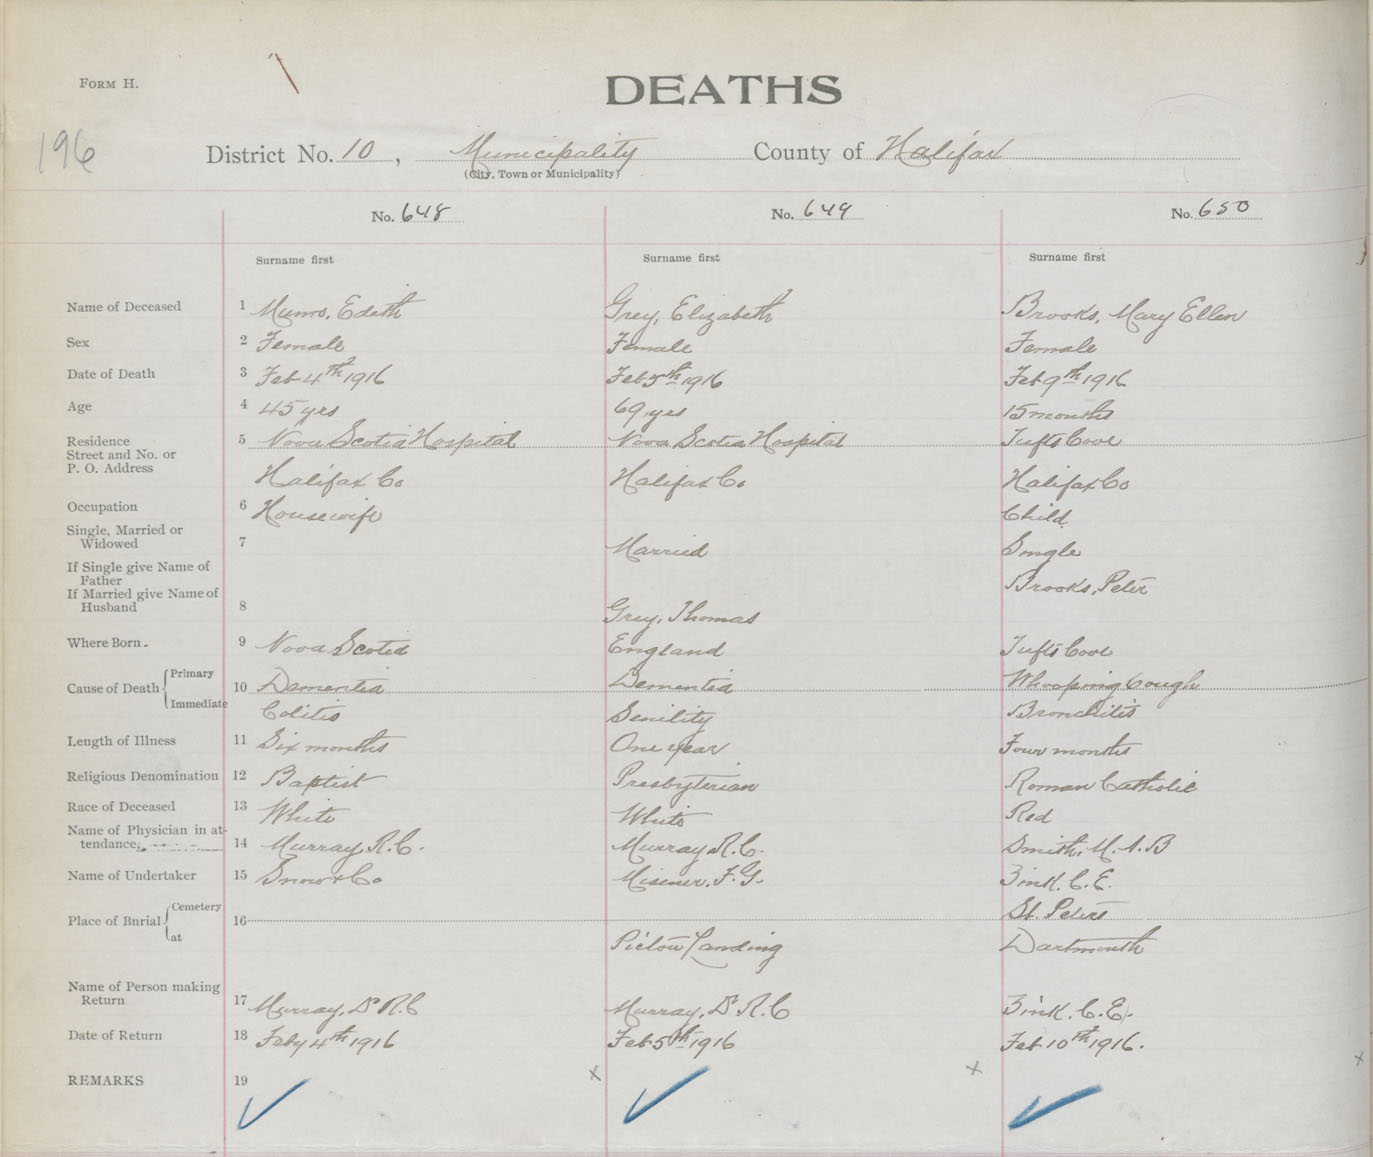 Form H.
DEATHS
196
District No. 10, Municipality County of Halifax
(City, Town or Municipality)
No. 648 No. 649 No. 650
Surname first Surname first Surname first
Name of Deceased 1 Munro, Edith Grey, Elizabeth Brooks, Mary Ellen
Sex 2 Female Female Female
Date of Death 3 Feb 4th 1916 Feb 5th 1916 Feb 9th 1916
Age 4 45 yrs 69 yrs 15 months
Residence 5 Nova Scotia Hospital Nova Scotia Hospital Tufts Cove
Street and No. or
P. O. Address Halifax Co Halifax Co Halifax Co
Occupation 6 Housewife Child
Single, Married or
Widowed 7 Married Single
If Single give Name of
Father Brooks, Peter
If Married give Name of
Husband 8 Grey, Thomas
Where Born 9 Nova Scotia England Tufts Cove
Cause of Death Primary 10 Dementia Dementia Whooping Cough
Immediate Colitis Senility Bronchitis
Length of Illness 11 Six months One year Four months
Religious Denomination 12 Baptist Presbyterian Roman Catholic
Race of Deceased 13 White White Red
Name of Physician in at-
tendance 14 Murray, R. C. Murray R. C. Smith, M. A. B
Name of Undertaker 15 Snow & Co Misener, F. G. Zink, C. E.
Place of Burial Cemetery 16 St. Peters
at Pictou Landing Dartmouth
Name of Person making
Return 17 Murray, Dr R. C Murray, Dr R. C Zink, C. E.
Date of Return 18 Feby 4th 1916 Feb 5th 1916 Feb 10th 1916.
REMARKS 19 x x x